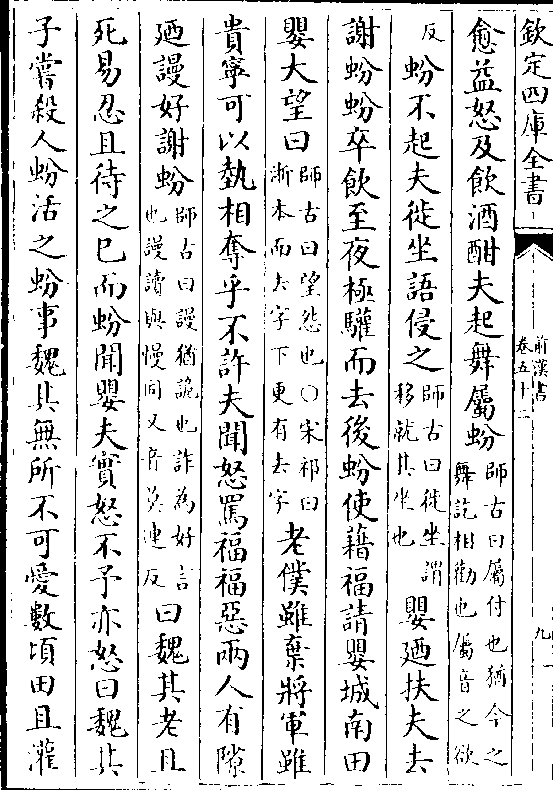 欽定四庫全書
前漢書
卷五十二
九
愈益怒及飲酒酣夫起舞屬蚡師古曰屬付也猶今之舞訖相勸也屬音之欲
反蚡不起夫徙坐語侵之師古曰徙坐謂移就其坐也嬰廼扶夫去
謝蚡蚡卒飲至夜極驩而去後蚡使藉福請嬰城南田
嬰大望曰師古曰望怨也○宋祁曰浙本而去字下更有去字老僕雖棄將軍雖
貴寧可以埶相奪乎不許夫聞怒罵福福惡兩人有隙
廼謾好謝蚡師古曰謾猶詭也詐為好言也謾讀與慢同又音莫連反曰魏其老且
死易忍且待之已而蚡聞嬰夫實怒不予亦怒曰魏其
子嘗殺人蚡活之蚡事魏其無所不可愛數頃田且灌